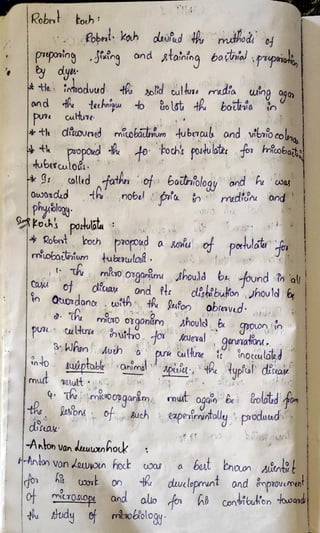 Robert Koch :
Robert Koch deviced the methods of
preparing , fixing and staining bacterial preparation
by dyes.
* He introduced the solid culture media using agar
and the technique to isolate the bacteria in
pure culture.
* He discovered micobacterium tubercule and vibrio colerae
* He proposed the Koch's postulates for micobacterium
tuberculosis.
* Is called father of bacteriology and he was
awarded the nobel price in medicine and
physiology.
Koch's postulate :
* Robert Koch proposed a series of postulates for
micobacterium tuberculosis.
1. The micro organism should be found in all
cases of disease and its distribution should be
in accordance with the lesion observed.
2. The micro organism should be grown in
pure culture invitro for several generations.
3. When such a pure culture is inocculated
into suseptable animal species, the typical disease
must result.
4. The microorganism must again be isolated from
the lesions of such experimentally produced
disease.
-Anton van Leeuwenhock :
*Anton van Leeuwen hock was a best known scientist
for his work on the development and improvement
of microscope and also for his contribution towards
the study of microbiology.